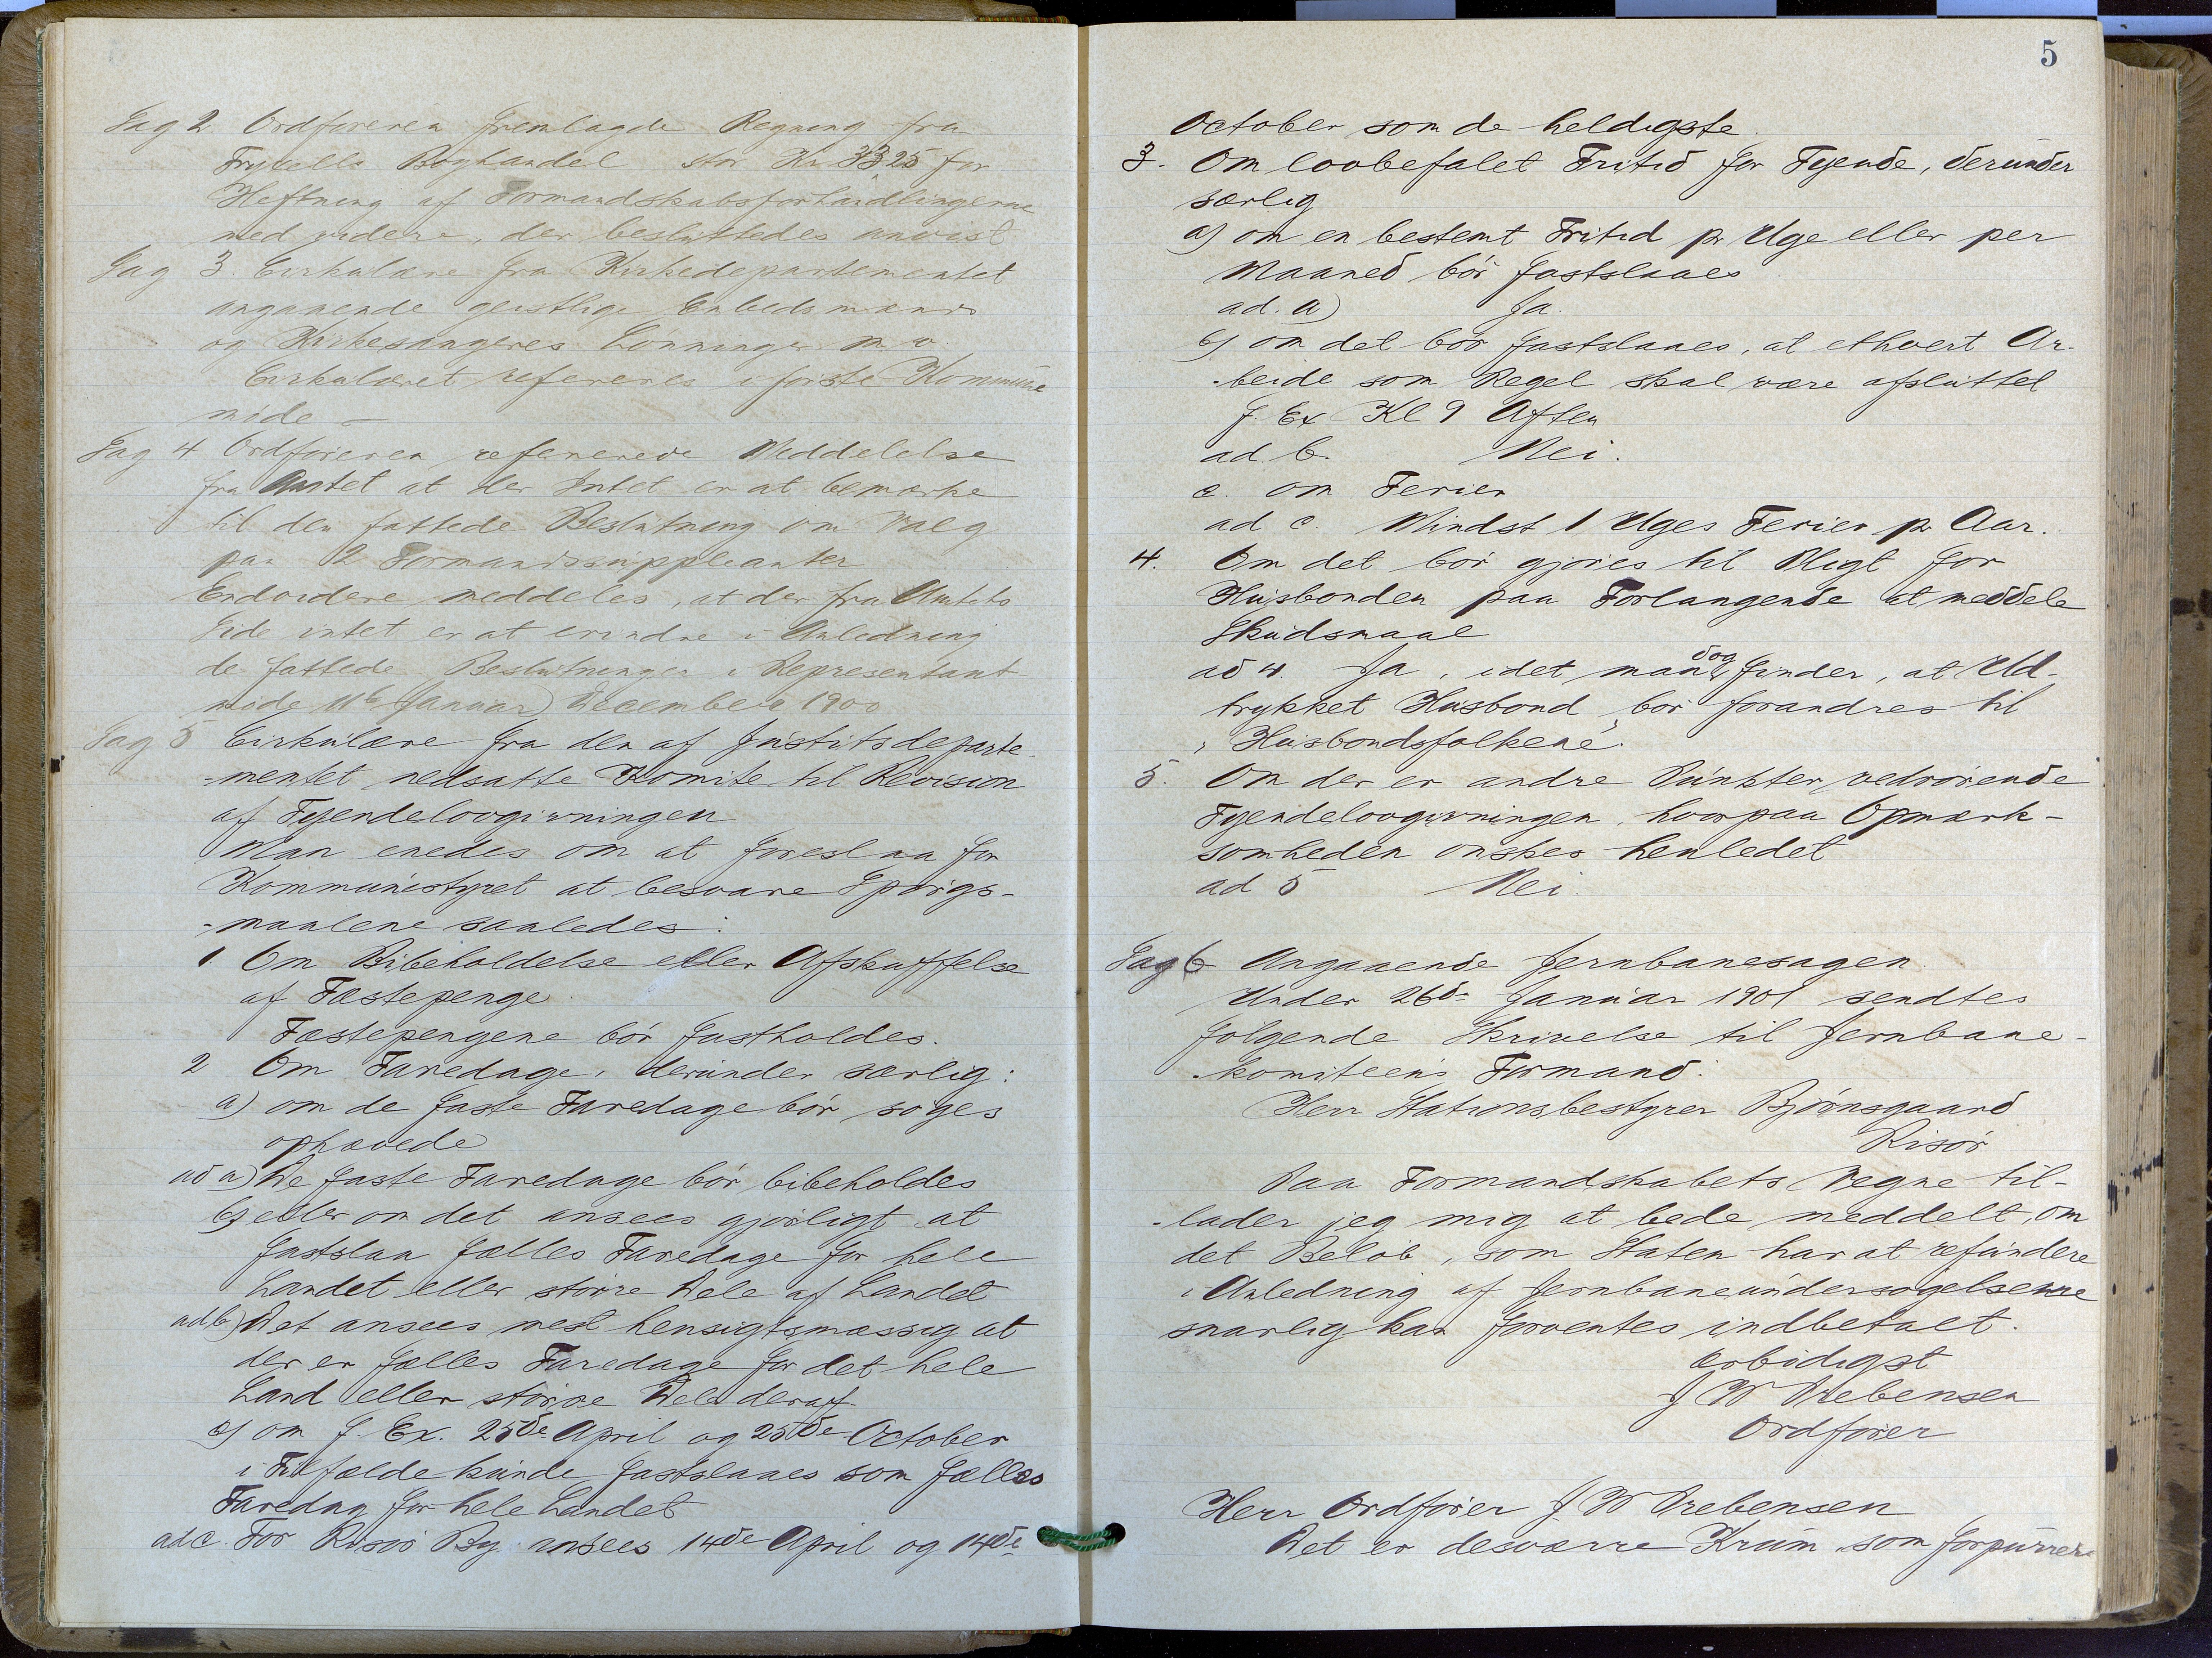 Sag 2 Ordføreren fremlagde Regning fra
Boghandel stor Kr 33,25 for
Heftning af Formandskabsforhandlingerne
med videre, der besluttedes anvist
Sag 3. Cirkulære fra Kirkedepartementet
angaaende geistlige Embedsmænds
og Kirkesangeres Lønninger m v.
Cirkulæret refereres i første Kommune
møde –
Sag 4 Ordføreren refererede Meddelelse
fra Amtet at der Intet er at bemærke
til den fattede Beslutning om Valg
paa 2 Formandssuppleanter
Endvidere meddeles, at der fra Amtets
Side intet er at erindre i Anledning
de fattede Beslutninger i Representant
møde 11te Januar) December 1900
Sag 5 Cirkulære fra den af Justitsdeparte-
-mentet nedsatte Komite til Revision
af Tyendelovgivningen
Man enedes om at foreslaa for
Kommunestyret at besvare Spørgs-
-maalene saaledes:
1. Om Bibeholdelse eller Afskaffelse
af Fæstepenge.
Fæstepengene bør fastholdes.
2 Om Faredage, derunder særlig:
a) om de faste Faredage bør søges
ophævede
ad a) De faste Faredage bør bibeholdes
b) eller om det ansees gjørligt at
fastslaa fælles Faredage for hele
Landet eller større Dele af Landet
ad b) Det ansees mest hensigtsmæssig at
der er fælles Faredage for det hele
Land eller større Dele deraf.
c) om f. Ex. 25de April og 25de October
i Tilfælde kunde fastslaaes som fælles
Faredag for hele Landet
ad c. For Risør By ansees 14de April og 14de
5
October som de heldigste.
3. Om lovbefalet Fritid for Tyende, derunder
særlig
a) om en bestemt Fritid pr Uge eller per
Maaned bør fastslaaes
ad. a) Ja.
b) om det bør fastslaaes, at ethvert Ar-
-beide som Regel skal være afsluttet
f. Ex Kl 9 Aften
ad b. Nei.
c. om Ferier
ad c. Mindst 1 Uges Ferier pr Aar.
4. Om det bør gjøres til Pligt for
Husbonden paa Forlangende at meddele
Skudsmaal
ad 4. Ja, idet man dog finder, at Ud-
trykket Husbond bør forandres til
"Husbondsfolkene".
5. Om der er andre Punkter vedrørende
Tyendelovgivningen, hvorpaa Opmærk-
somheden ønskes henledet
ad 5 Nei.
Sag 6 Angaaende Jernbanesagen.
Under 26de Januar 1901 sendtes
følgende Skrivelse til Jernbane-
-komiteens Formand.
Herr Stationsbestyrer Bjørnsgaard
Risør
Paa Formandskabets Vegne til-
-lader jeg mig at bede meddelt, om
det Beløb, som Staten har at refundere
i Anledning af Jernbaneundersøgelserne
snarlig kan forventes indbetalt.
Ærbødigst
J W Prebensen
Ordfører
Herr Ordfører J. W Prebensen
Det er desværre Krüm, som forpurrer